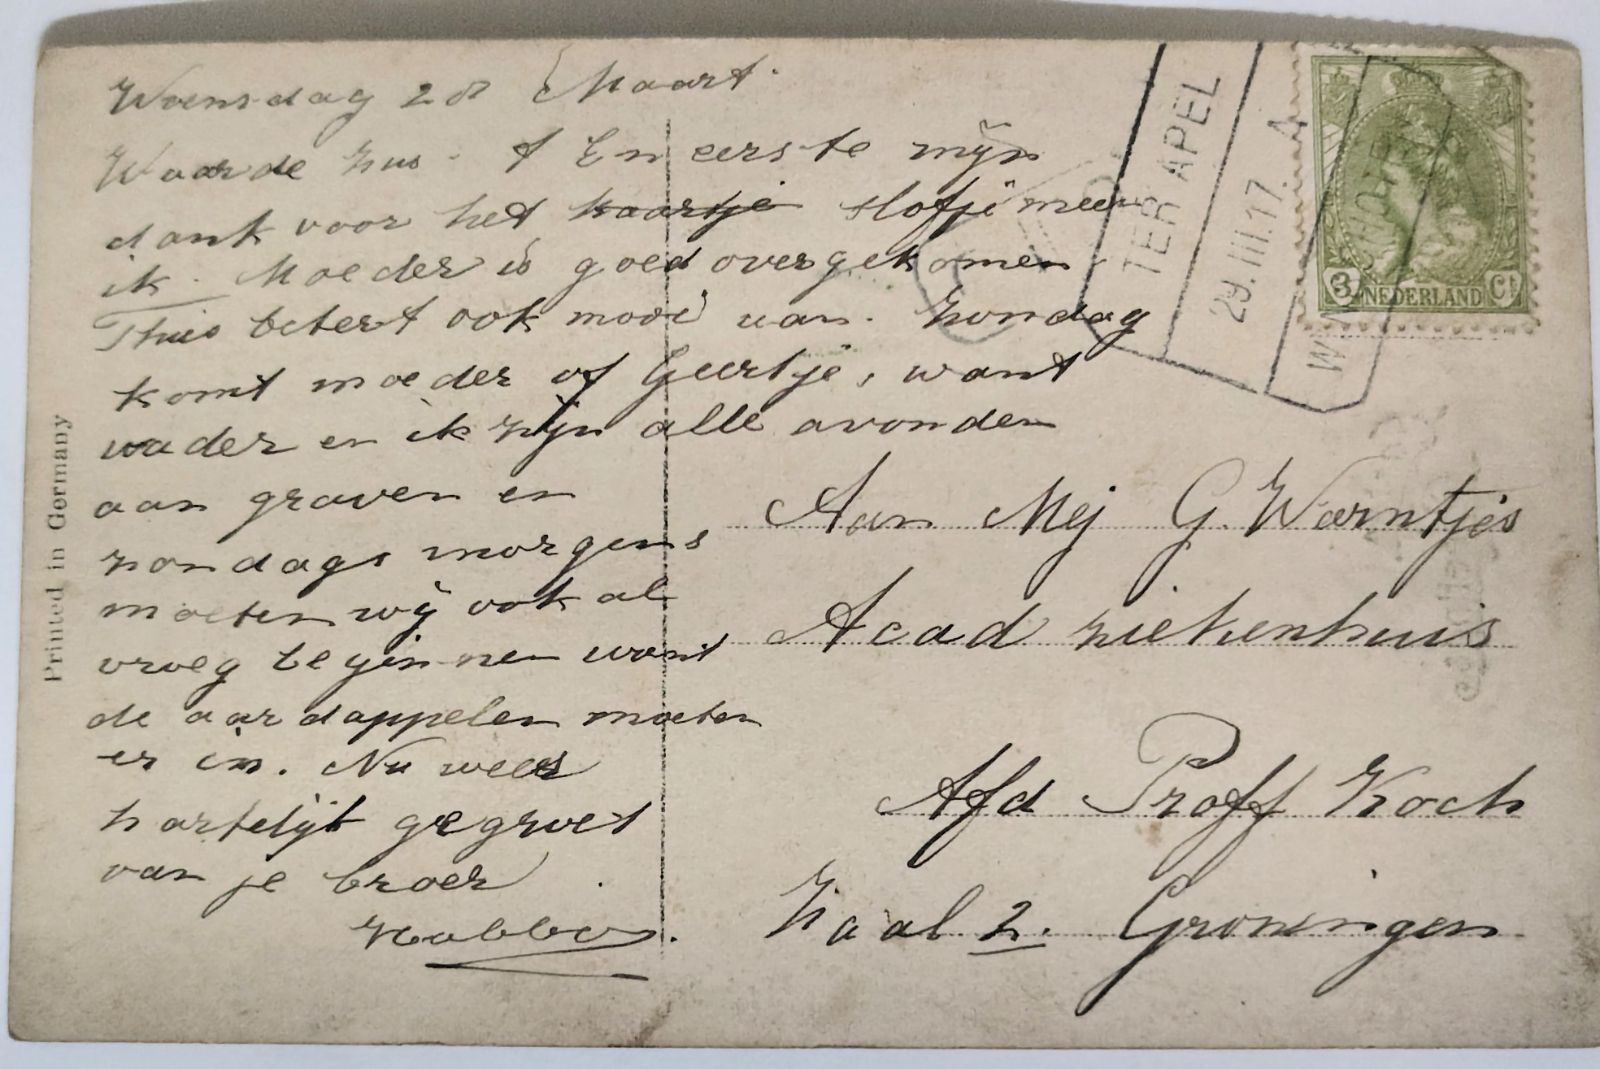 Woensdag 28 Maart.
Waarde zus. Ten eerste mijn
dank voor het kaartje slofje meen
ik. Moeder is goed overgekomen.
Thuis betert ook mooi aan. Zondag
komt moeder of Geertje, want
vader en ik zijn alle avonden
aan graven en
zondags morgens
moeten wij ook al
vroeg beginnen want
de aardappelen moeten
er in. Nu wees
hartelijk gegroet
van je broer
Habbo.
Printed in Germany
TER APEL
29.III.17. A
WINSCHOTEN
3 NEDERLAND Ct
Aan Mej G. Warntjes
Acad ziekenhuis
Afd Proff Koch
Zaal 2. Groningen